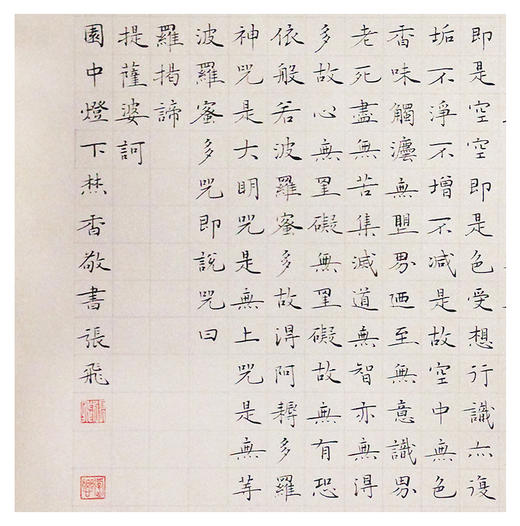 即是空空即是色受想行識亦復
垢不淨不增不減是故空中無色
香味觸灋無眼界迺至無意識界
老死盡無苦集滅道無智亦無得
多故心無罣礙無罣礙故無有恐
依般若波羅蜜多故得阿耨多羅
神咒是大明咒是無上咒是無等
波羅蜜多咒即說咒曰
羅揭諦
提薩婆訶
園中燈下焚香敬書張飛